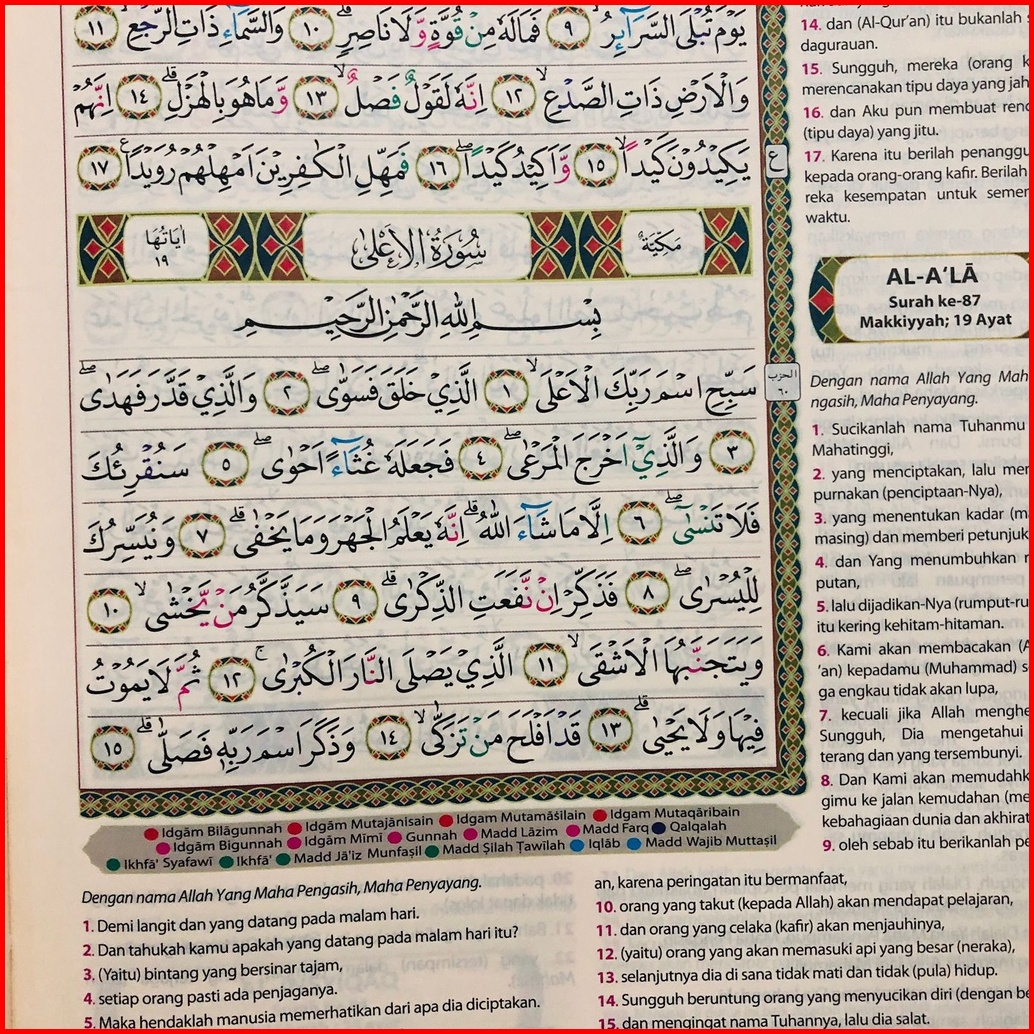 يَوْمَ تُبْلَى السَّرَاۤىِٕرُۙ ٩ فَمَا لَهٗ مِنْ قُوَّةٍ وَّلَا نَاصِرٍۗ ١٠ وَالسَّمَاۤءِ ذَاتِ الرَّجْعِۙ ١١
وَالْاَرْضِ ذَاتِ الصَّدْعِۙ ١٢ اِنَّهٗ لَقَوْلٌ فَصْلٌۙ ١٣ وَّمَا هُوَ بِالْهَزْلِۗ ١٤ اِنَّهُمْ
يَكِيْدُوْنَ كَيْدًاۙ ١٥ وَّاَكِيْدُ كَيْدًاۖ ١٦ فَمَهِّلِ الْكٰفِرِيْنَ اَمْهِلْهُمْ رُوَيْدًاࣖ ١٧
ع
مَكِّيَّةٌ
سُوْرَةُ الْاَعْلٰى
اٰيَاتُهَا ١٩
بِسْمِ اللّٰهِ الرَّحْمٰنِ الرَّحِيْمِ
الحزب ٦٠
سَبِّحِ اسْمَ رَبِّكَ الْاَعْلَىۙ ١ الَّذِيْ خَلَقَ فَسَوّٰىۖ ٢ وَالَّذِيْ قَدَّرَ فَهَدٰىۖ
٣ وَالَّذِيْٓ اَخْرَجَ الْمَرْعٰىۖ ٤ فَجَعَلَهٗ غُثَاۤءً اَحْوٰىۖ ٥ سَنُقْرِئُكَ
فَلَا تَنْسٰىٓۖ ٦ اِلَّا مَا شَاۤءَ اللّٰهُۗ اِنَّهٗ يَعْلَمُ الْجَهْرَ وَمَا يَخْفٰىۗ ٧ وَنُيَسِّرُكَ
لِلْيُسْرٰىۖ ٨ فَذَكِّرْ اِنْ نَّفَعَتِ الذِّكْرٰىۗ ٩ سَيَذَّكَّرُ مَنْ يَّخْشٰىۙ ١٠
وَيَتَجَنَّبُهَا الْاَشْقَىۙ ١١ الَّذِيْ يَصْلَى النَّارَ الْكُبْرٰىۚ ١٢ ثُمَّ لَا يَمُوْتُ
فِيْهَا وَلَا يَحْيٰىۗ ١٣ قَدْ اَفْلَحَ مَنْ تَزَكّٰىۙ ١٤ وَذَكَرَ اسْمَ رَبِّهٖ فَصَلّٰىۗ ١٥
Idgām Bilāgunnah Idgām Mutajānisain Idgam Mutamāṡilain Idgam Mutaqāribain
Idgām Bigunnah Idgām Mīmī Gunnah Madd Lāzim Madd Farq Qalqalah
Ikhfā' Syafawī Ikhfā' Madd Jā'iz Munfaṣil Madd Ṣilah Ṭawīlah Iqlāb Madd Wajib Muttaṣil
Dengan nama Allah Yang Maha Pengasih, Maha Penyayang.
1. Demi langit dan yang datang pada malam hari.
2. Dan tahukah kamu apakah yang datang pada malam hari itu?
3. (Yaitu) bintang yang bersinar tajam,
4. setiap orang pasti ada penjaganya.
5. Maka hendaklah manusia memerhatikan dari apa dia diciptakan.
an, karena peringatan itu bermanfaat,
10. orang yang takut (kepada Allah) akan mendapat pelajaran,
11. dan orang yang celaka (kafir) akan menjauhinya,
12. (yaitu) orang yang akan memasuki api yang besar (neraka),
13. selanjutnya dia di sana tidak mati dan tidak (pula) hidup.
14. Sungguh beruntung orang yang menyucikan diri (dengan be
15. dan mengingat nama Tuhannya, lalu dia salat.
14. dan (Al-Qur'an) itu bukanlah
dagurauan.
15. Sungguh, mereka (orang k
merencanakan tipu daya yang jah
16. dan Aku pun membuat renc
(tipu daya) yang jitu.
17. Karena itu berilah penanggu
kepada orang-orang kafir. Berilah
reka kesempatan untuk semen
waktu.
AL-A‘LĀ
Surah ke-87
Makkiyyah; 19 Ayat
Dengan nama Allah Yang Mah
ngasih, Maha Penyayang.
1. Sucikanlah nama Tuhanmu
Mahatinggi,
2. yang menciptakan, lalu men
purnakan (penciptaan-Nya),
3. yang menentukan kadar (m
masing) dan memberi petunjuk
4. dan Yang menumbuhkan r
putan,
5. lalu dijadikan-Nya (rumput-ru
itu kering kehitam-hitaman.
6. Kami akan membacakan (A
'an) kepadamu (Muhammad) s
ga engkau tidak akan lupa,
7. kecuali jika Allah menghe
Sungguh, Dia mengetahui
terang dan yang tersembunyi.
8. Dan Kami akan memudahk
gimu ke jalan kemudahan (me
kebahagiaan dunia dan akhirat
9. oleh sebab itu berikanlah pe